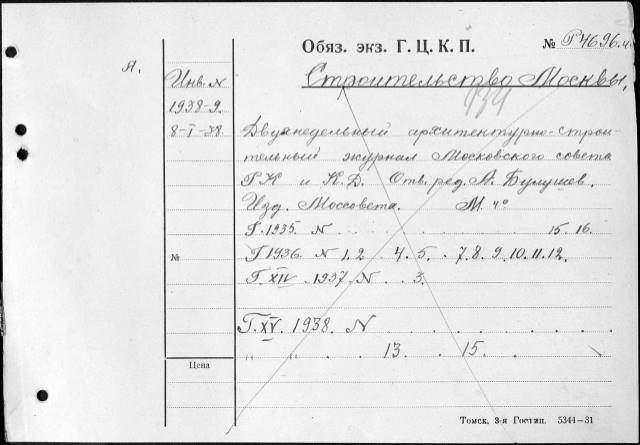 Обяз. экз. Г. Ц. К. П. № Р4696.
Я.
Инв. N
Строительство Москвы,
1938-9.
934
8-I-38.
Двухнедельный архитектурно-строи-
тельный журнал Московского совета
РК и К.Д. Отв. ред. А. Булушев.
Изд. Моссовета. М. 4°
Г. 1935. N . . . . . . . . 15. 16.
№
Г 1936. N 1. 2 . 4. 5. . 7. 8. 9. 10. 11. 12.
Г. XIV . 1937. N . . 3.
Г. XV. 1938. N . . . . . . . . .
„ „ . . . 13 . . 15. . . . .
Цена
Томск. 3-я Гостип. 5344—31